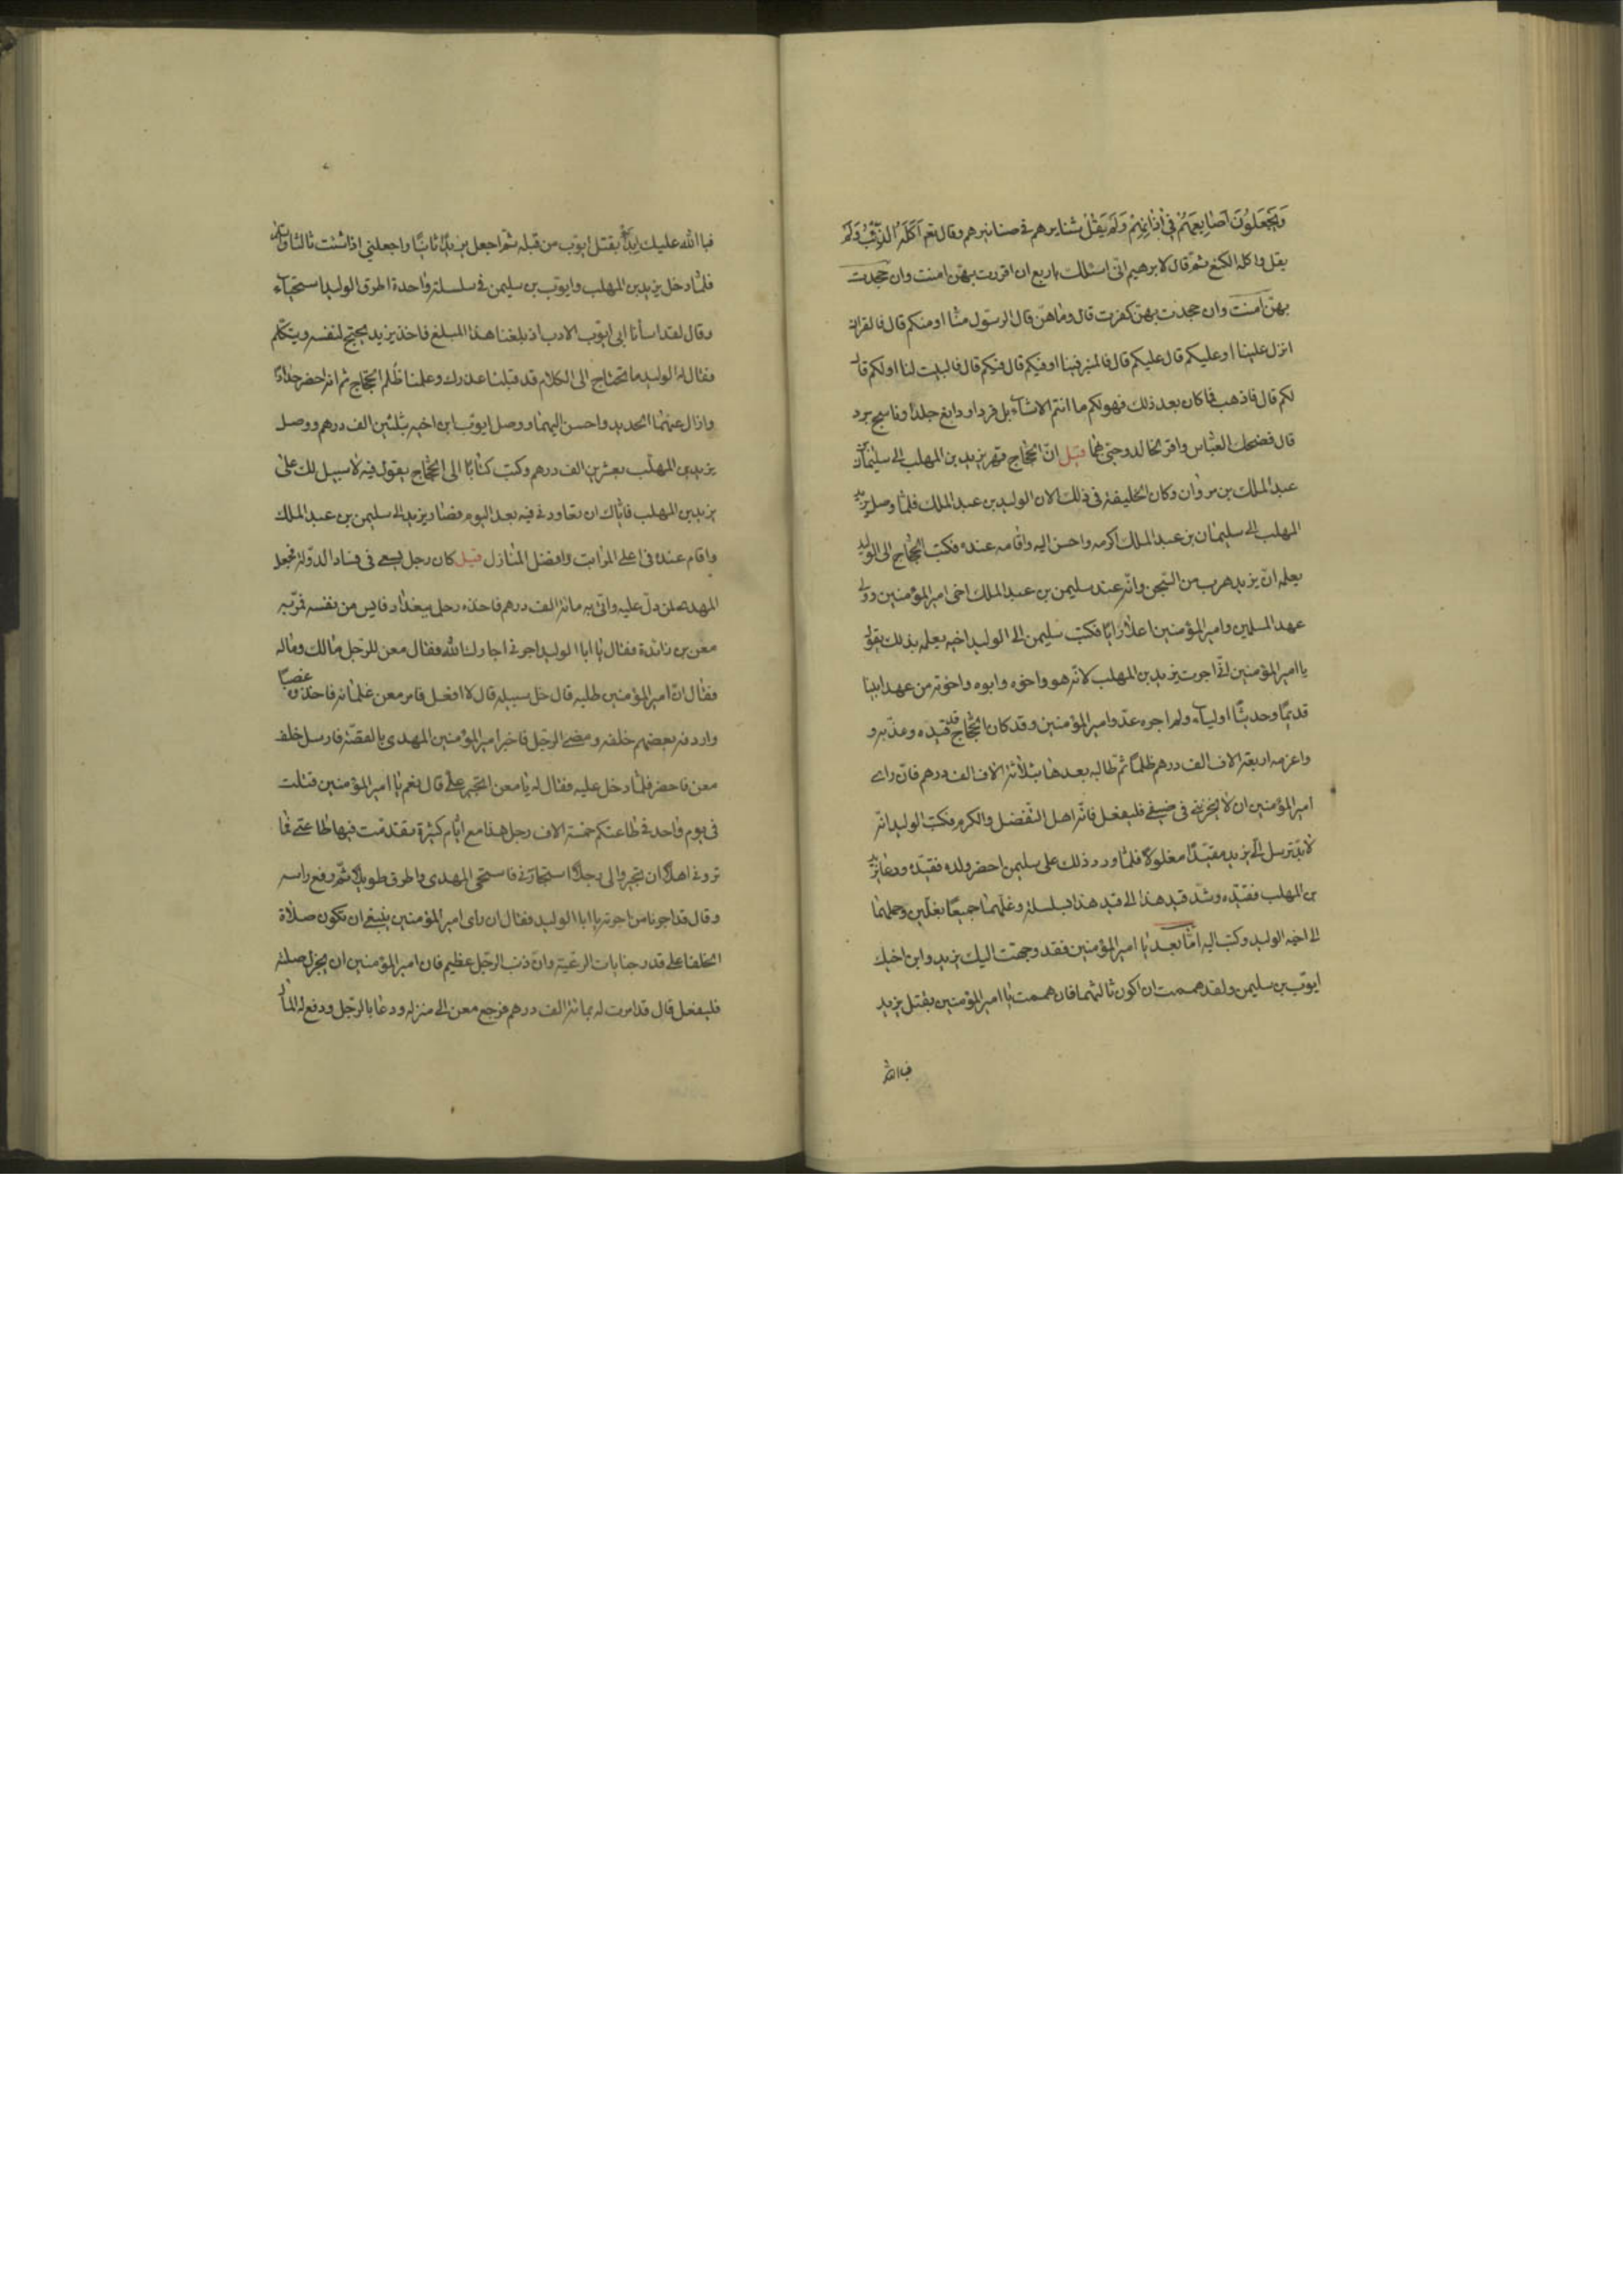 وَيَجْعَلُونَ اَصَابِعَهُمْ فِى اٰذَانِهِمْ وَلَمْ يَقُلْ شناترهم فى صنانيرهم وقال نعم اَكَلَهُ الذِّئْبُ وَلَمْ
يقل واكله الكنع ثم قال لابرهيم انى اسئلك باربع ان اقررت بهن امنت وان جحدت
بهن امنت وان جحدت بهن كفرت قال وما هن قال الرسول منا او منكم قال فالقران
انزل علينا او عليكم قال عليكم قال فالمنبر فينا او فيكم قال فيكم قال فالبيت لنا او لكم قال
لكم قال فاذهب فما كان بعد ذلك فهو لكم ما انتم الا شاء بل قرد او دابغ جلد او ناسج برد
قال فضحك العباس واقر خالد وحبى هما قيل ان الحجاج قهر يزيد بن المهلب الى سليمان
عبد الملك بن مروان وكان الخليفة فى ذلك الان الوليد بن عبد الملك فلما وصل يزيد
المهلب الى سليمان بن عبد الملك اكرمه واحسن اليه واقامه عنده فكتب الحجاج الى الوليد
يعلمه ان يزيد هرب من السجن وانه عند سليمن بن عبد الملك اخى امير المؤمنين وولى
عهد المسلمين وامير المؤمنين اعلا رايا فكتب سليمن الى الوليد اخيه يعلمه بذلك يقول
يا امير المؤمنين انى اجرت يزيد بن المهلب لانه هو واخوه وابوه واخوته من عهد ابينا
قديما وحديثا اولياء ولم اجره عدو امير المؤمنين وقد كان الحجاج قد قيده وعذبه و
واغرمه اربعة الاف الف درهم ظلما ثم طالبه بعدها بثلاثة الاف الف درهم فان راى
امير المؤمنين ان لا يخزينى فى ضيفى فليفعل فانه اهل التفضل والكرم فكتب الوليد انه
لا بد ترسل الى يزيد مقيدا مغلولا فلما ورد ذلك على سليمن احضر ولده فقيده ودعا يزيد
بن المهلب فقيده وشد قيد هذا الى قيد هذا بسلسلة وغلهما جميعا بغلين وحملهما
الى اخيه الوليد وكتب اليه اما بعد يا امير المؤمنين فقد وجهت اليك يزيد وابن اخيك
ايوب بن سليمن ولقد هممت ان اكون ثالثهما فان هممت يا امير المؤمنين بقتل يزيد
فبالله
فبا الله عليك ابدأ بقتل ايوب من قبله ثم اجعل يزيد ثانيا واجعلنى اذا شئت ثالثا والسلم
فلما دخل يزيد بن المهلب وايوب بن سليمن فى سلسلة واحدة اطرق الوليد استحياء
وقال لقد اسأنا الى ايوب الادب اذ بلغنا هذا المبلغ فاخذ يزيد يحتج لنفسه ويتكلم
فقال له الوليد ما تحتاج الى الكلام قد قبلنا عذرك وعلمنا ظلم الحجاج ثم انه احضر حدادا
وازال عنهما الحديد واحسن اليهما ووصل ايوب ابن اخيه بثلثين الف درهم ووصل
يزيد بن المهلب بعشرين الف درهم وكتب كتابا الى الحجاج يقول فيه لا سبيل لك على
يزيد بن المهلب فاياك ان تعاودنى فيه بعد اليوم فصار يزيد الى سليمن بن عبد الملك
واقام عنده فى اعلى المراتب وافضل المنازل قيل كان رجل يسعى فى فساد الدولة فجعل
المهدى لمن دل عليه واتى به مائة الف درهم فاخذه رجل ببغداد فايس من نفسه فمر به
معن بن زائدة فقال يا ابا الوليد اجرنى اجارك الله فقال معن للرجل مالك وماله
فقال ان امير المؤمنين طلبه قال خل سبيله قال لا افعل فامر معن غلمانه فاخذوه غصبا
واردفه بعضهم خلفه ومضى الرجل فاخبر امير المؤمنين المهدى بالقصة فارسل خلف
معن فاحضر فلما دخل عليه فقال له يا معن اتجير على قال نعم يا امير المؤمنين قتلت
فى يوم واحد فى طاعتكم خمسة الاف رجل هذا مع ايام كثيرة تقدمت فيها طاعتى فما
ترونى اهلا ان تجيروا لى رجلا استجار بى فاستحى المهدى واطرق طويلا ثم رفع راسه
وقال قد اجرنا من اجرته يا ابا الوليد فقال ان راى امير المؤمنين ينبغى ان تكون صلاة
الخلفا على قدر جنايات الرعية وان ذنب الرجل عظيم فان امير المؤمنين ان يجزل صلته
فليفعل قال قد امرت له بمائة الف درهم فرجع معن الى منزله ودعا بالرجل ودفع له المال